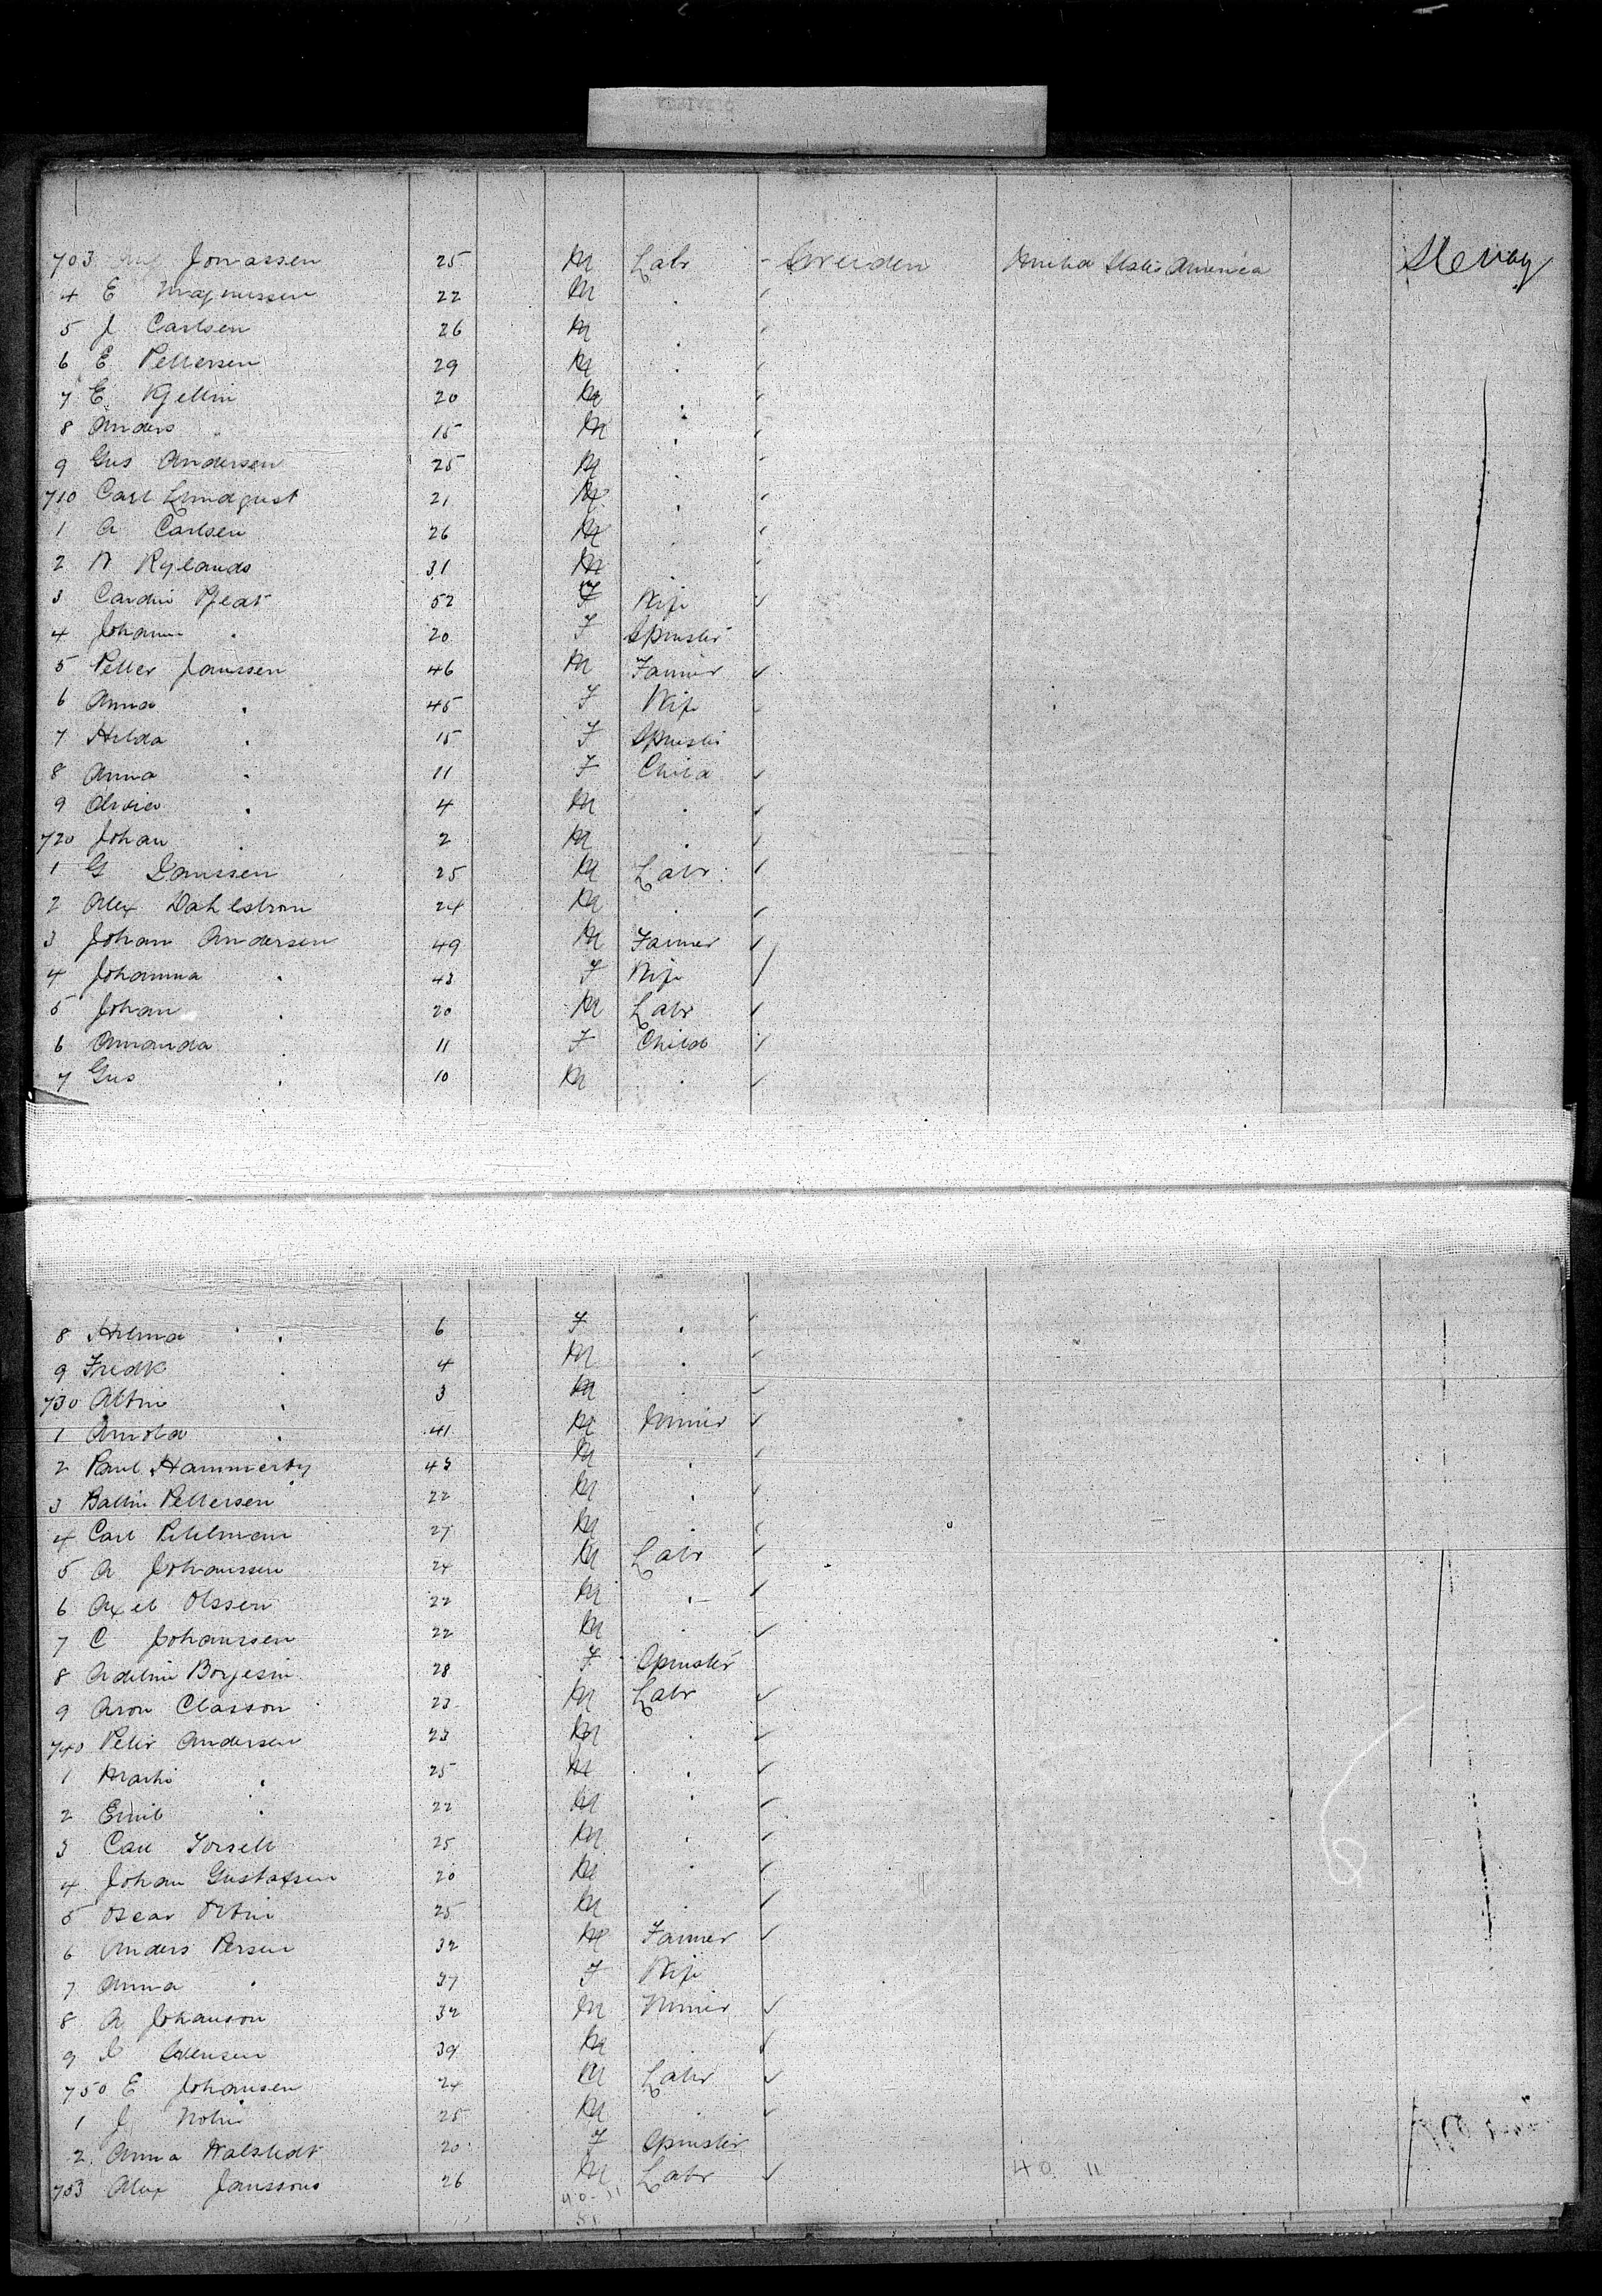 703 Jonassen 25 M Labr - Sweeden United States America
4 E Magnussen 22 M .
5 J Carlsen 26 M .
6 E Pettersen 29 M .
7 E. 20 M .
8 Anders . 15 M .
9 Gus Andersen 25 M .
710 Carl Lundqust 21 M .
1 A Carlsen 26 M .
2 Rylands 31 M .
3 52 F Wife
4 Johanna . 20 F Spinster
5 Petter Janssen 46 M Farmer
6 Anna . 45 F Wife
7 Hilda . 15 F Spinster
8 Anna . 11 F Child
9 . 4 M .
720 Johan . 2 M .
1 G Janssen 25 M Labr
2 Alex Dahlstrom 24 M .
3 Johan Andersen 49 M Farmer
4 Johanna . 43 F Wife
5 Johan . 20 M Labr
6 Amanda . 11 F Child
7 Gus . 10 M .
8 Hilma . 6 F .
9 Fredk . 4 M .
730 Albin . 3 M .
1 Arnold . 41 M Miner
2 Paul Hammerby 43 M .
3 Pettersen 22 M .
4 Carl 27 M .
5 A Johanssen 24 M Labr
6 Axel Olssen 22 M .
7 C Johanssen 22 M .
8 Adeline 28 F Spinster
9 Aron Classon 23 M Labr
740 Peter Andersen 23 M .
1 . 25 M .
2 Emil . 22 M .
3 Carl 25 M .
4 Johan Gustafsen 20 M .
5 Oscar 25 M .
6 Anders Persen 32 M Farmer
7 Anna . 37 F Wife
8 A Johanson 32 M Miner
9 39 M .
750 E Johansen 24 M Labr
1 J 25 M .
2 Anna Walstedt 20 F Spinster
753 Alex Janssons 26 M Labr 40 11
40-11
51